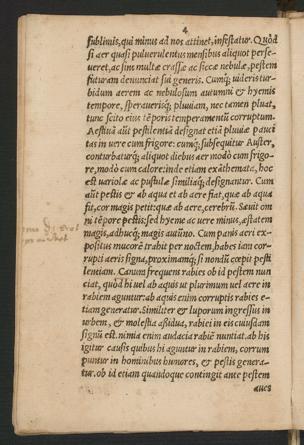 4
sublimis, qui minus ad nos attinet, infestatur. Quòd
si aer quasi puluerulentus mensibus aliquot perse-
ueret, ac sins multæ crassæ ac siccæ nebulæ, pestem
futuram denunciat sui generis. Cumq; uideris tur-
bidum aerem ac nebulosum autumni & hyemis
tempore, sperauerisq; pluuiam, nec tamen pluat,
tunc scito eius tẽporis temperamentũ corruptum.
Aestiuã aũt pestilentiã designat etiã pluuiæ pauci
tas in uere cum frigore: cumq; subsequitur Auster,
conturbaturq; aliquot diebus aer modò cum frigo-
re, modò cum calore: inde etiam exãthemata, hoc
est uariolæ ac pustulæ similiaq; designantur. Cum
aũt pestis & ab aqua et ab aere fiat, quæ ab aqua
fit, cor magis petit: quæ ab aere, cerebrũ. Sæuit om
ni tẽpore pestis: sed hyeme ac uere minus, æstatem
magis, adhucq; magis autũno. Cum panis aeri ex-
positus mucorẽ trahit per noctem, habes iam cor-
rupti aeris signa, proximamq; si nondũ cœpit pesti
lentiam. Canum frequens rabies ob id pestem nun
ciat, quòd hi uel ab aquis ut plurimum uel aere in
rabiem aguntur: ab aquis enim corruptis rabies e-
tiam generatur. Similiter & luporum ingressus in
urbem, & molestia aßidua, rabiei in eis cuiusdam
signũ est. nimia enim audacia rabiẽ nuntiat. ab his
igitur causis quibus hi aguntur in rabiem, corrum
puntur in hominibus humores, & pestis genera-
tur. ob id etiam quandoque contingit ante pestem
aues